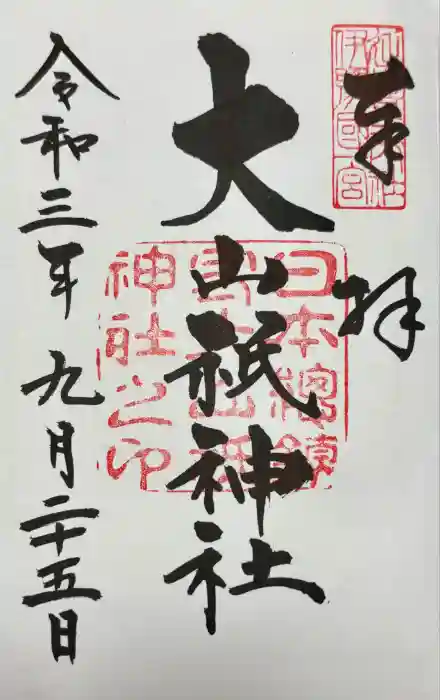 奉拝
大山祇神社
日本總鎮
神社之印
伊豫國一宮
令和三年九月二十五日